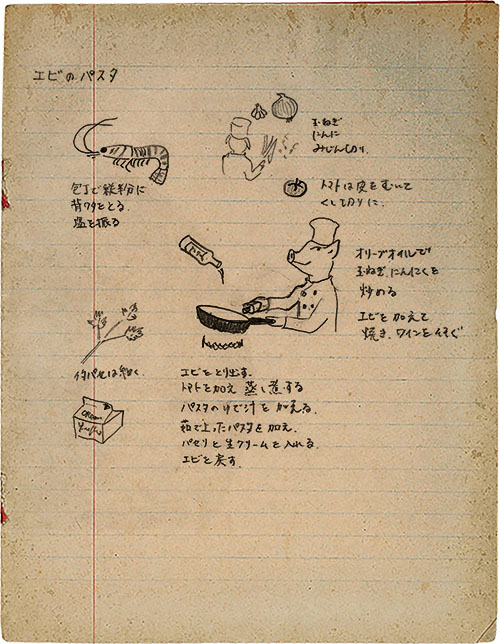 エビのパスタ
玉ねぎ
にんに
みじんしり.
包丁で縦半分に
背ワタをとる.
塩を振る
トマトは皮をむいて
くし切りに.
オリーブオイルで
玉ねぎ、にんにくを
炒める
エビを加えて
焼き、ワインをそそぐ
イタパセは細く.
CREAM
エビをとり出す.
トマトを加え 蒸し煮する
パスタのゆで汁を加える.
茹で上ったパスタを加え.
パセリと生クリームを入れる.
エビを戻す.